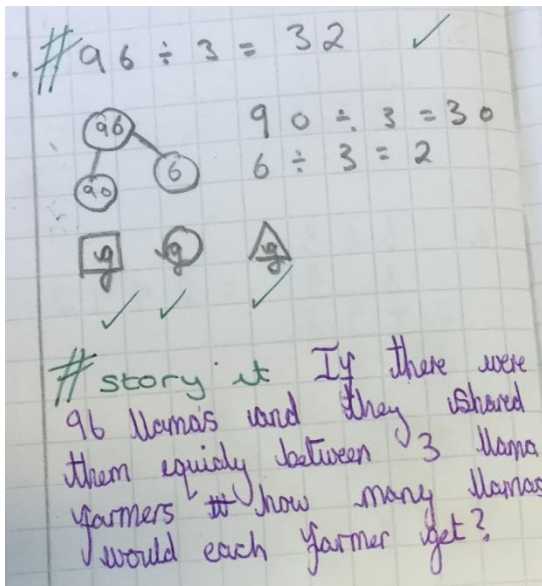 # 96 ÷ 3 = 32 ✓
96
90 ÷ 3 = 30
90 6
6 ÷ 3 = 2
y y y
✓ ✓ ✓
# story it If there were
96 llama's and they shared
them equidy between 3 llama
farmers how many llamas
would each farmer get?